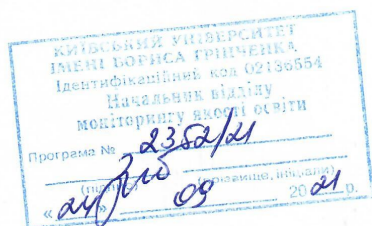 КИЇВСЬКИЙ УНІВЕРСИТЕТ
ІМЕНІ БОРИСА ГРІНЧЕНКА
Ідентифікаційний код 02136554
Начальник відділу
моніторингу якості освіти
Програма № 2352/21
(підпис) (прізвище, ініціали)
«24» 09 2021 р.